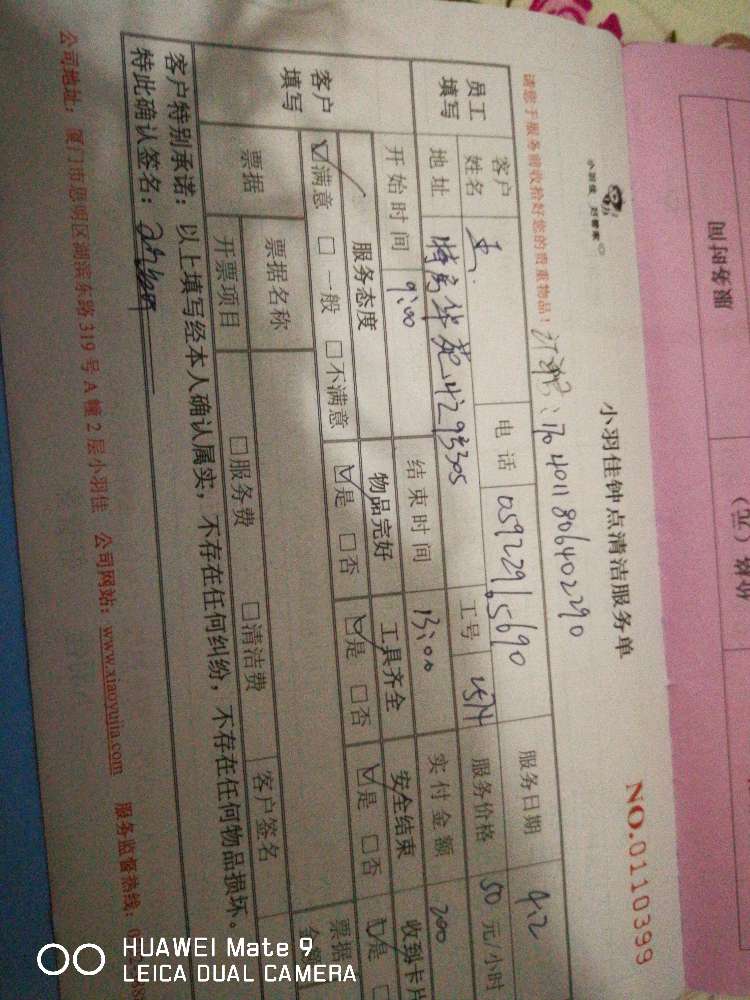 小羽佳 刘管家
小羽佳钟点清洁服务单
NO.0110399
请您于服务前收拾好您的贵重物品！
1704011806402290
员工填写
客户姓名
王
电话
05922915690
服务日期
4.2
地址
工号
服务价格
50 元/小时
客户填写
开始时间
9:00
结束时间
13:00
实付金额
200
服务态度
物品完好
工具齐全
安全结束
收到卡片
☑满意 □一般 □不满意
☑是 □否
☑是 □否
☑是 □否
是
票据
票据名称
客户签名
票据
开票项目
□服务费
□清洁费
客户特别承诺：以上填写经本人确认属实，不存在任何纠纷，不存在任何物品损坏。
特此确认签名：
公司地址：厦门市思明区湖滨东路319号A幢2层小羽佳 公司网站：www.xiaoyujia.com 服务监督热线：
服务时间
HUAWEI Mate 9
LEICA DUAL CAMERA